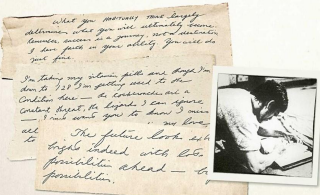 What you HABITUALLY think largely
determines what you will ultimately become.
Remember success is a journey, not a destination.
I have faith in your ability. You will do
just fine.
I'm taking my vitamin pills and though I'm
down to 128 I'm getting used to the
conditions here — the cockroaches are a
constant threat, the lizards I can ignore
I want you to know I miss
all my love
The future looks
bright indeed with lots
possibilities ahead — big
possibilities.